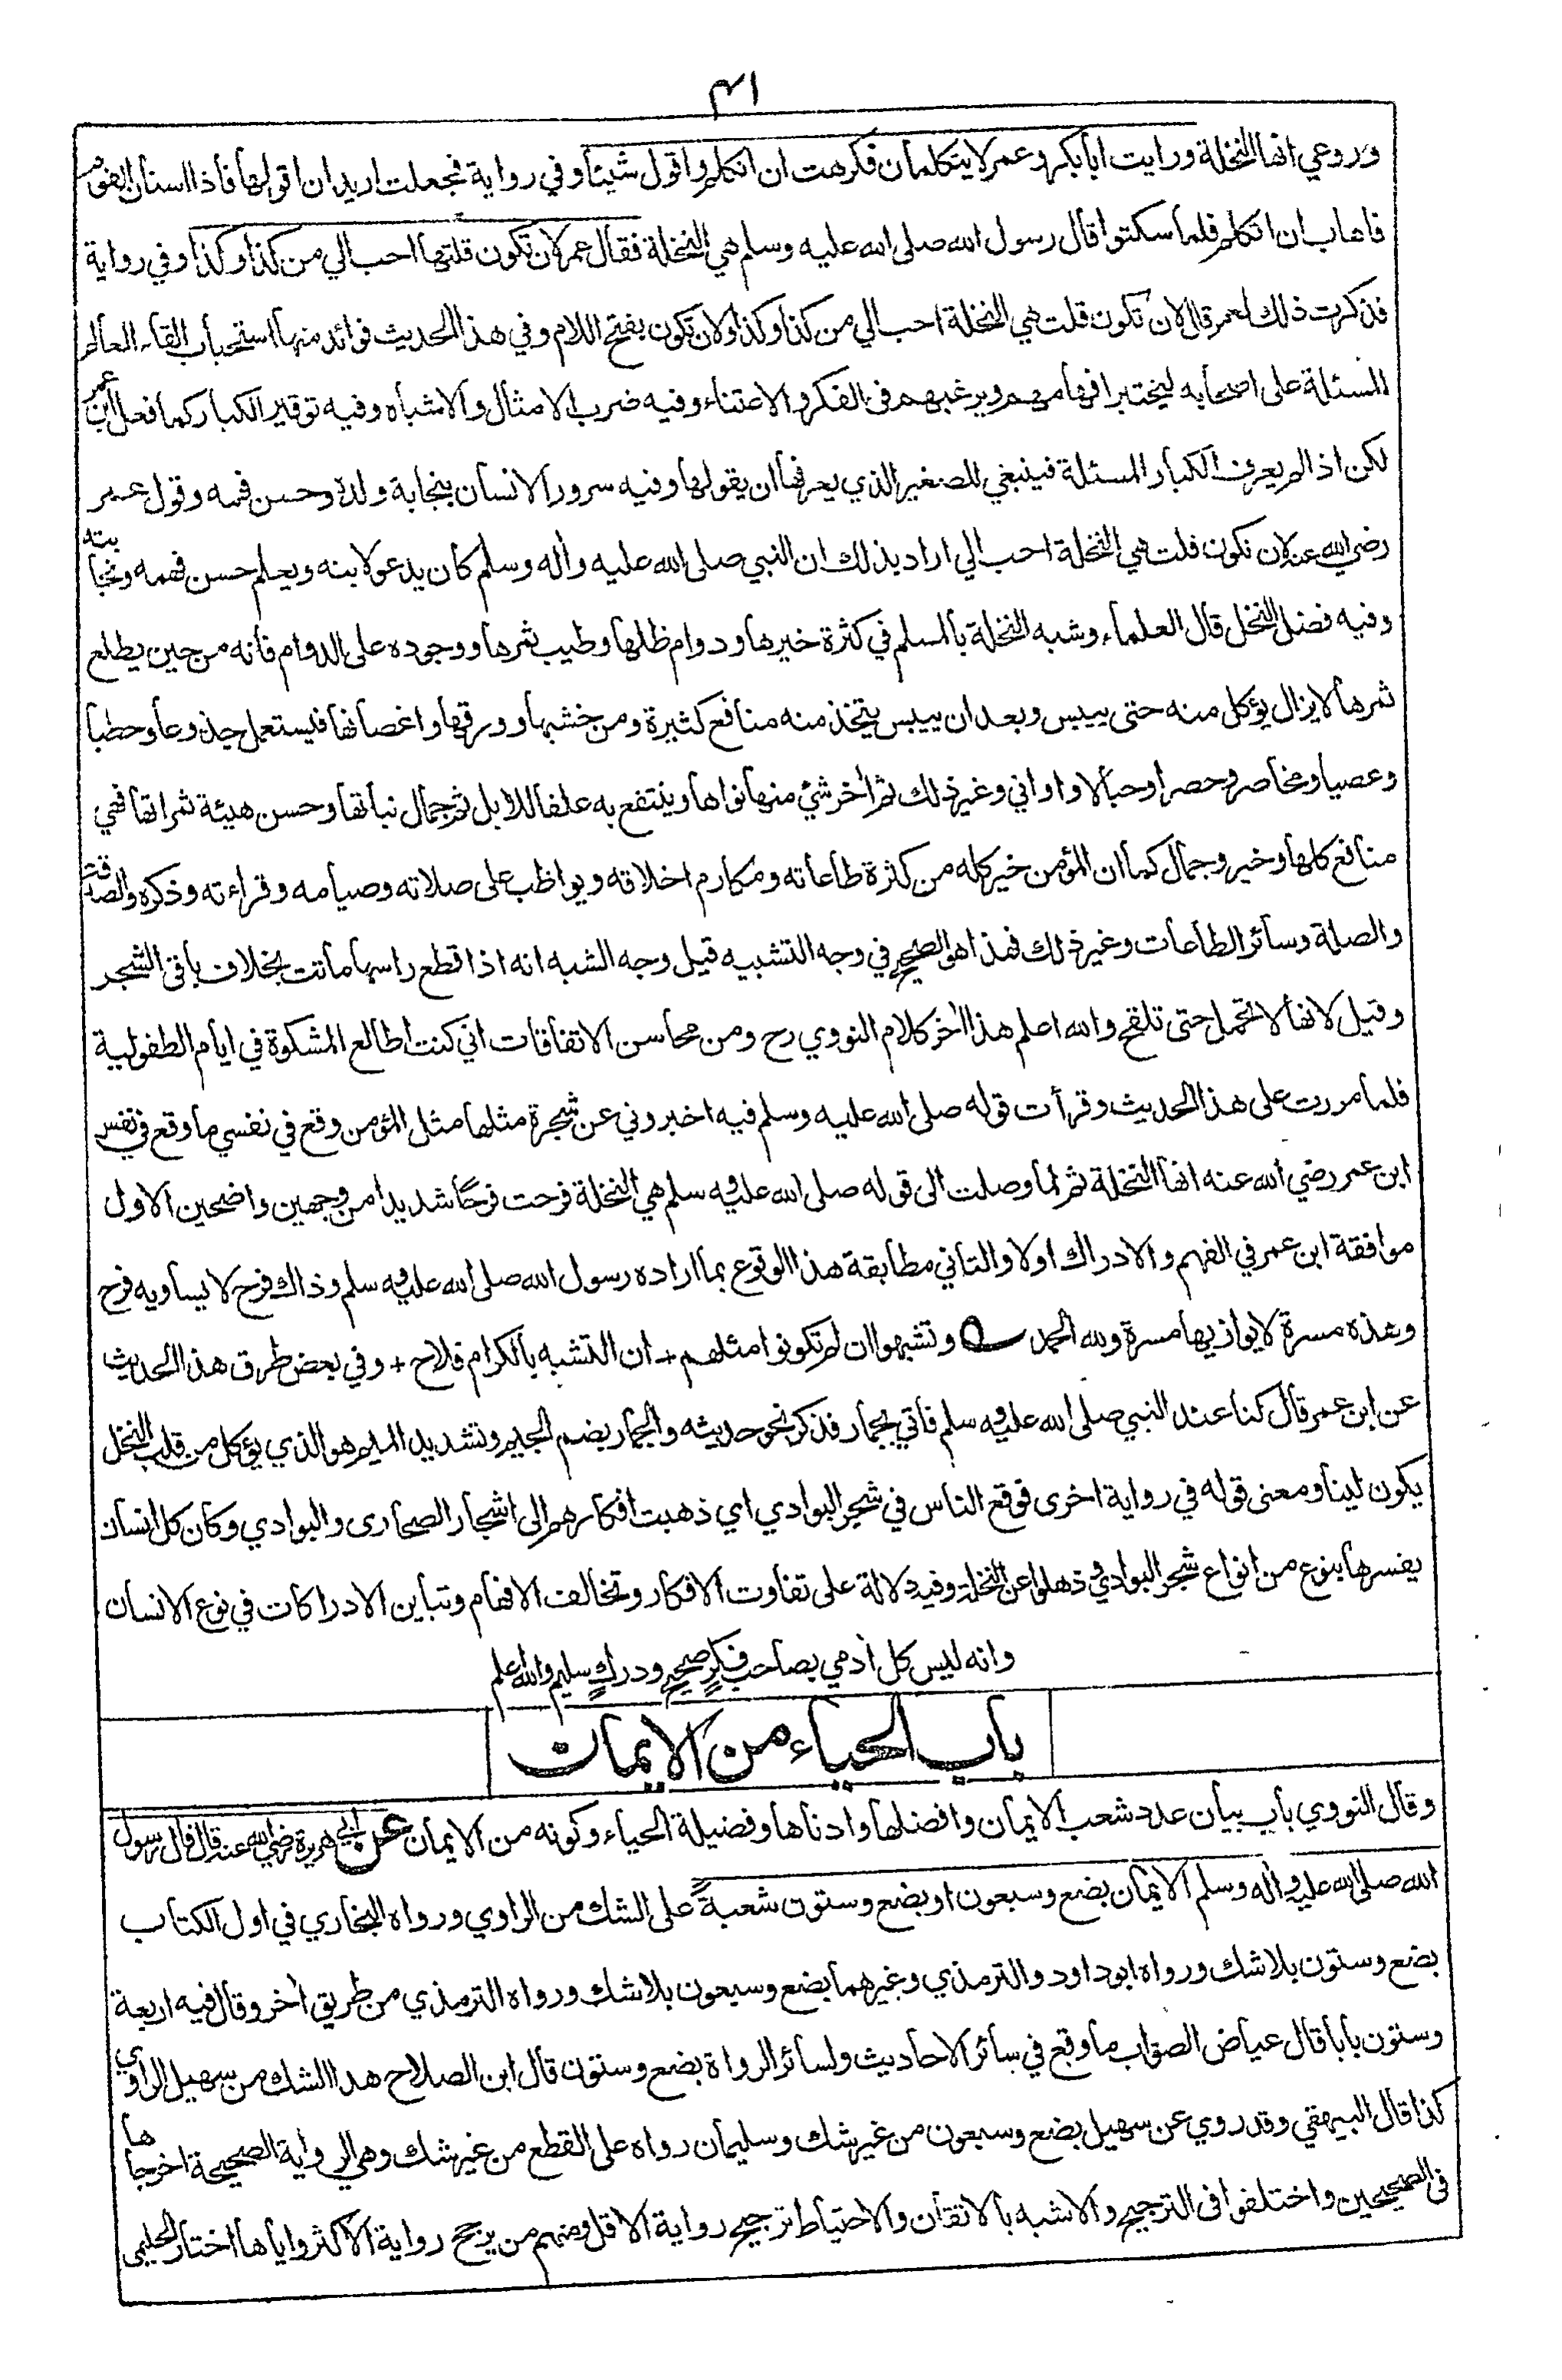 ٤١
وروعي انها النخلة ورايت ابابكر وعمر لا يتكلمان فكرهت ان اتكلم واقول شيئا وفي رواية فجعلت اريد ان اقولها فاذا اسنان القوم
فاهاب ان اتكلم فلما سكتوا قال رسول الله صلى الله عليه وسلم هي النخلة فقال عمر لان تكون قلتها احب الي من كذا وكذا وفي رواية
فذكرت ذلك لعمر قال لان تكون قلت هي النخلة احب الي من كذا وكذا ولان تكون بفتح اللام وفي هذا الحديث فوائد منها استحباب القاء العالم
المسئلة على اصحابه ليختبر افهامهم ويرغبهم فى الفكر والاعتناء وفيه ضرب الامثال والاشباه وفيه توقير الكبار كما فعل ابن عمر
لكن اذا لم يعرف الكبار المسئلة فينبغي للصغير الذي يعرفها ان يقولها وفيه سرور الانسان بنجابة ولده وحسن فهمه وقول عمر
رضي الله عنه لان تكون قلت هي النخلة احب الي اراد بذلك ان النبي صلى الله عليه واله وسلم كان يدعو لابنه ويعلم حسن فهمه ونجابته
وفيه فضل النخل قال العلماء وشبه النخلة بالمسلم في كثرة خيرها ودوام ظلها وطيب ثمرها ووجوده على الدوام فانه من حين يطلع
ثمرها لا يزال يؤكل منه حتى ييبس وبعد ان ييبس يتخذ منه منافع كثيرة ومن خشبها وورقها واغصانها فيستعمل جذوعا وحطبا
وعصيا ومخاصر وحصرا وحبالا واواني وغير ذلك ثم اخر شئ منها نواها وينتفع به علفا للابل ثم جمال نباتها وحسن هيئة ثمراتها فهي
منافع كلها وخير وجمال كما ان المؤمن خير كله من كثرة طاعاته ومكارم اخلاقه ويواظب على صلاته وصيامه وقراءته وذكره والصدقة
والصلة وسائر الطاعات وغير ذلك فهذا هو الصحيح في وجه التشبيه قيل وجه الشبه انه اذا قطع راسها ماتت بخلاف باقى الشجر
وقيل لانها لا تحمل حتى تلقح والله اعلم هذا اخر كلام النووي رح ومن محاسن الاتفاقات اني كنت اطالع المشكوة في ايام الطفولية
فلما مررت على هذا الحديث وقرأت قوله صلى الله عليه وسلم فيه اخبروني عن شجرة مثلها مثل المؤمن وقع في نفسي ما وقع في نفس
ابن عمر رضي الله عنه انها النخلة ثم لما وصلت الى قوله صلى الله عليه وسلم هي النخلة فرحت فرحا شديدا من وجهين واضحين الاول
موافقة ابن عمر في الفهم والادراك اولا والثاني مطابقة هذا الوقوع بما اراده رسول الله صلى الله عليه وسلم وذاك فرح لا يساويه فرح
وهذه مسرة لا يوازيها مسرة ولله الحمد وتشبهوا ان لم تكونوا مثلهم + ان التشبه بالكرام فلاح + وفي بعض طرق هذا الحديث
عن ابن عمر قال كنا عند النبي صلى الله عليه وسلم فاتي بجمار فذكر نحو حديثه والجمار بضم الجيم وتشديد الميم هو الذي يؤكل من قلب النخل
يكون لينا ومعنى قوله في رواية اخرى فوقع الناس في شجر البوادي اي ذهبت افكارهم الى اشجار الصحارى والبوادي وكان كل انسان
يفسرها بنوع من انواع شجر البوادي وذهلوا عن النخلة وفيه دلالة على تفاوت الافكار وتخالف الافهام وتباين الادراكات في نوع الانسان
وانه ليس كل ادمي بصاحب فكرٍ صحيحٍ ودركٍ سليم والله اعلم
باب الحياء من الايمان
وقال النووي باب بيان عدد شعب الايمان وافضلها وادناها وفضيلة الحياء وكونه من الايمان عن ابي هريرة رضي الله عنه قال قال رسول
الله صلى الله عليه واله وسلم الايمان بضع وسبعون او بضع وستون شعبةً على الشك من الراوي ورواه البخاري في اول الكتاب
بضع وستون بلا شك ورواه ابو داود والترمذي وغيرهما بضع وسبعون بلا شك ورواه الترمذي من طريق اخر وقال فيه اربعة
وستون بابا قال عياض الصواب ما وقع في سائر الاحاديث ولسائر الرواة بضع وستون قال ابن الصلاح هذا الشك من سهيل الراوي
كذا قال البيهقي وقد روي عن سهيل بضع وسبعون من غير شك وسليمان رواه على القطع من غير شك وهي الرواية الصحيحة اخرجاها
فى الصحيحين واختلفوا فى الترجيح والاشبه بالاتقان والاحتياط ترجيح رواية الاقل ومنهم من يرجح رواية الاكثر واياها اختار الحليمي